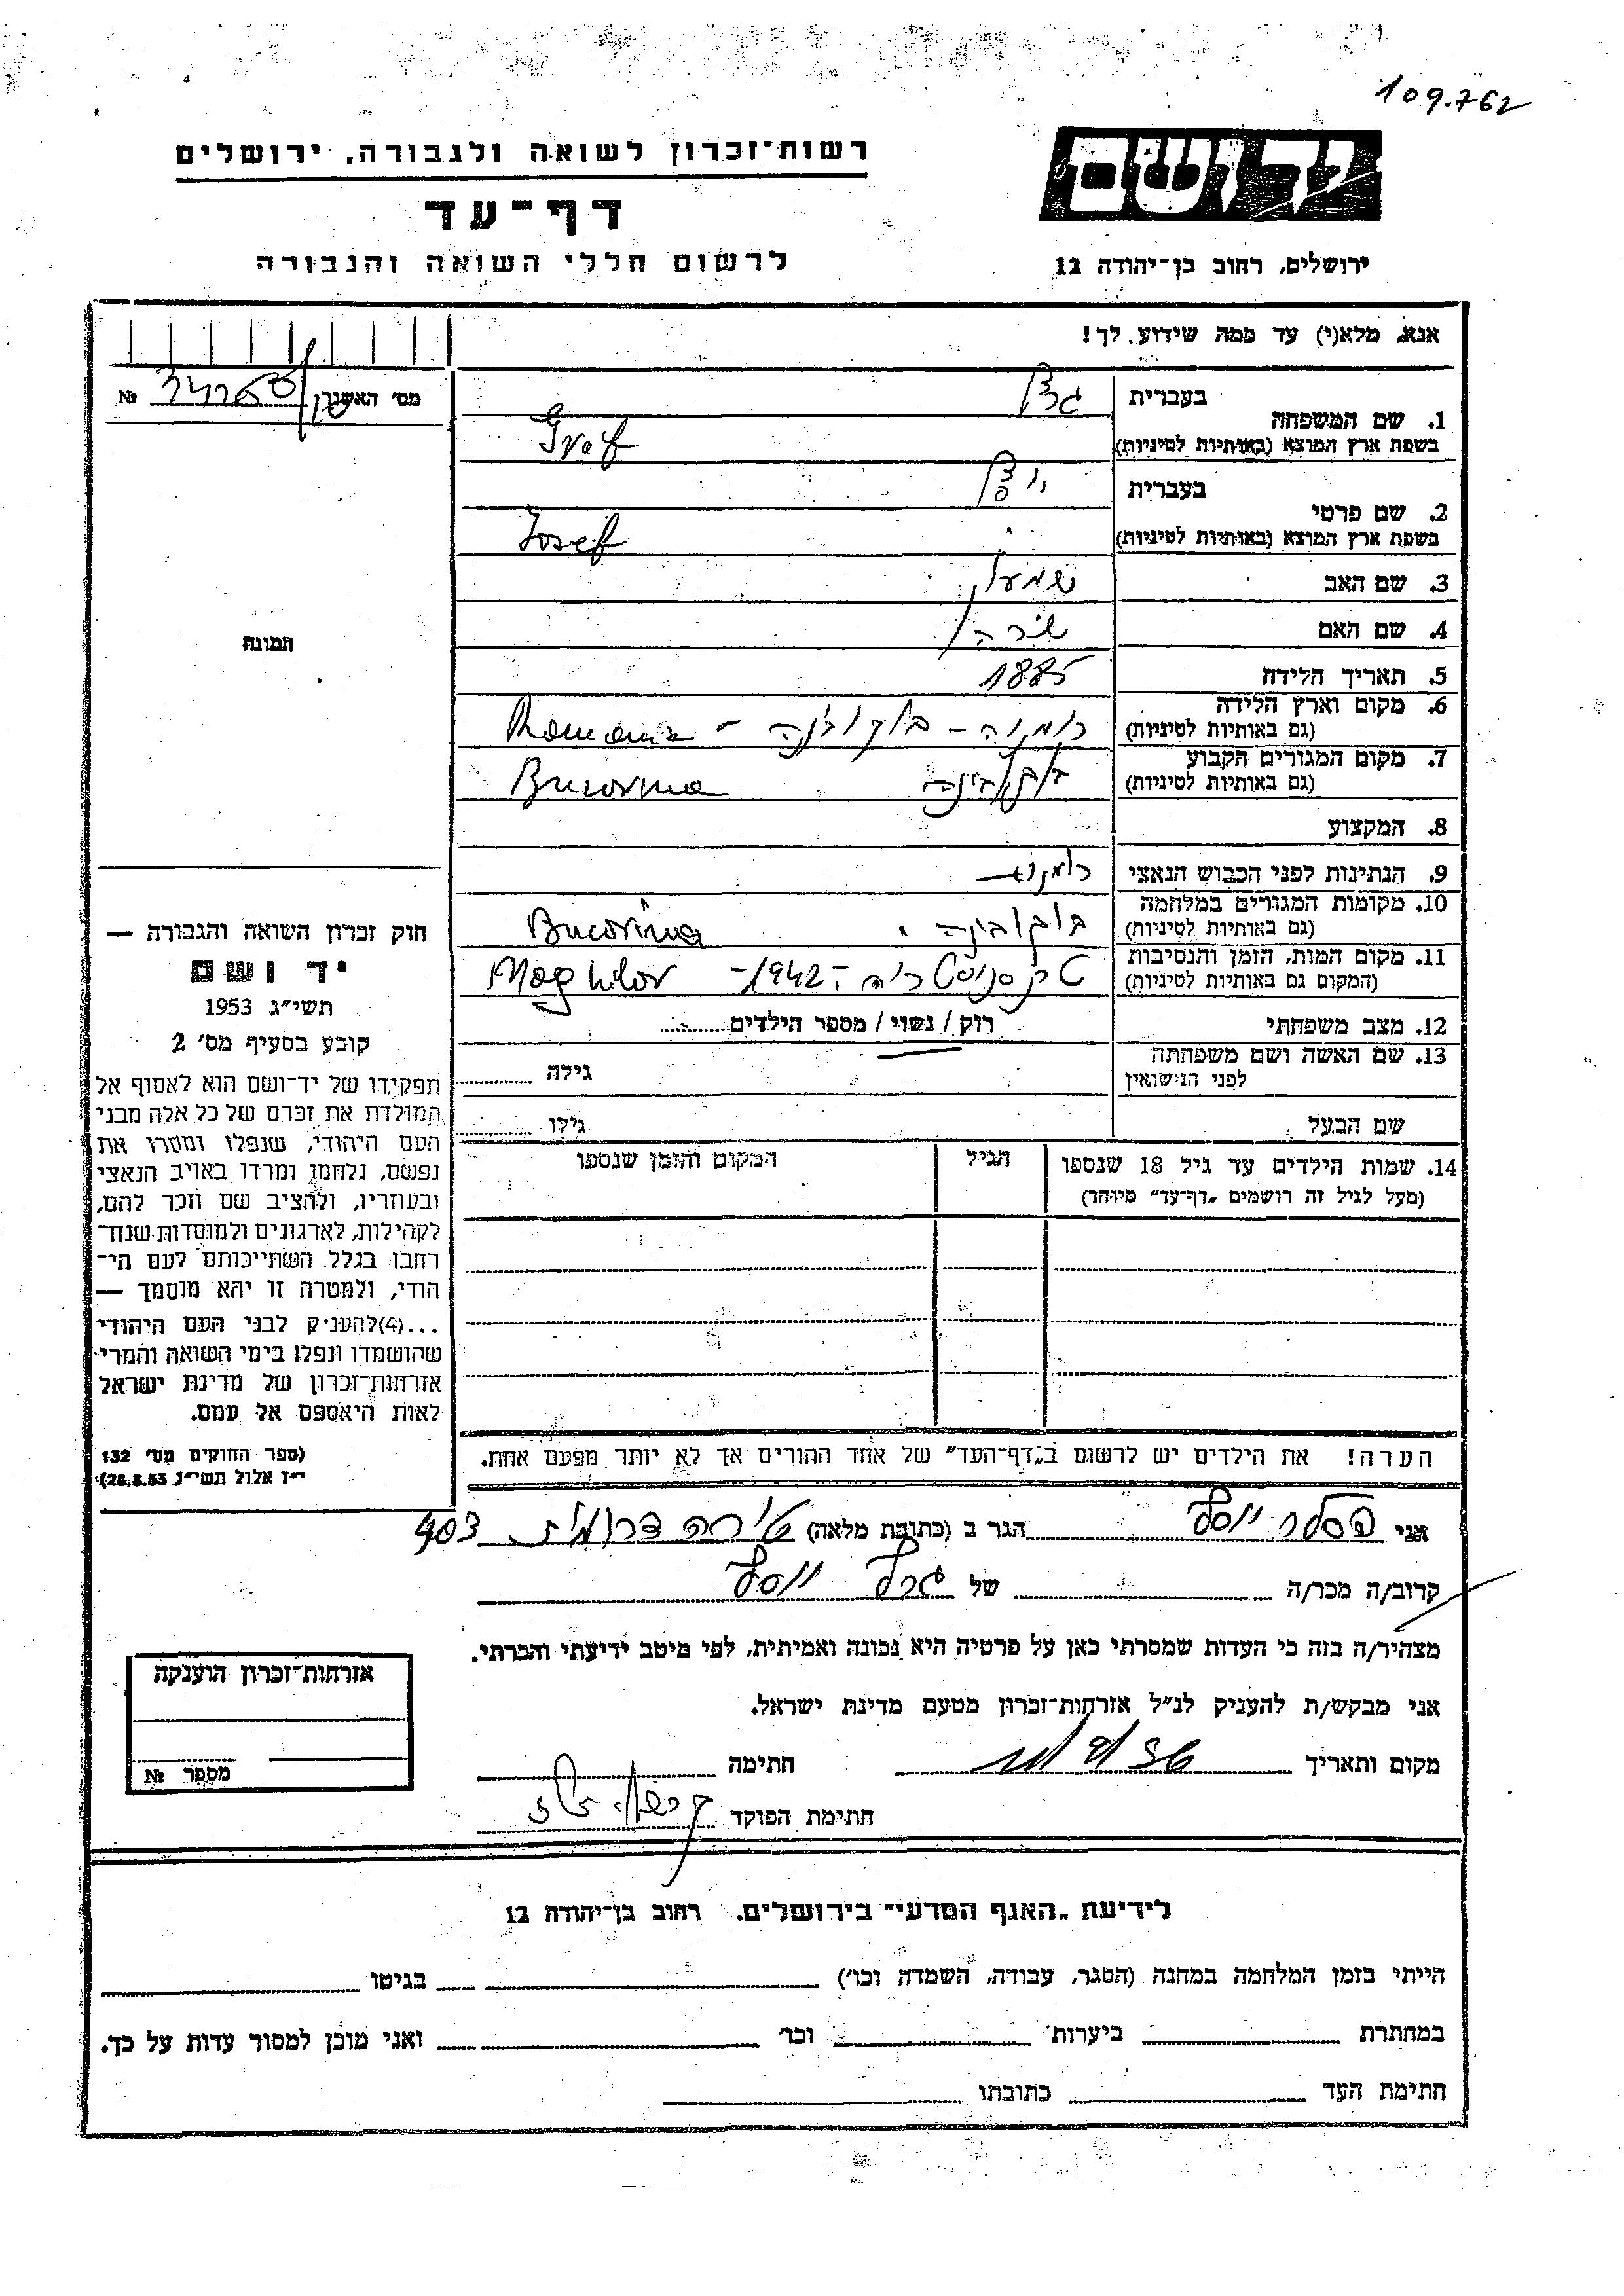 109.762
יד ושם
רשות־זכרון לשואה ולגבורה, ירושלים
דף־עד
לרשום חללי השואה והגבורה
ירושלים, רחוב בן־יהודה 12
אנא, מלא(י) עד כמה שידוע לך!
מס' האשרה №
1. שם המשפחה
בעברית גרף
בשפת ארץ המוצא (באותיות לטיניות) Graf
2. שם פרטי
בעברית יוסף
בשפת ארץ המוצא (באותיות לטיניות) Iosef
3. שם האב שמעון
4. שם האם שרה
5. תאריך הלידה 1885
6. מקום וארץ הלידה
(גם באותיות לטיניות) רומניה – בוקובינה – Romania
7. מקום המגורים הקבוע
(גם באותיות לטיניות) בוקובינה Bucovina
8. המקצוע
9. הנתינות לפני הכבוש הנאצי רומנית
10. מקומות המגורים במלחמה
(גם באותיות לטיניות) בוקובינה. Bucovina
11. מקום המות, הזמן והנסיבות
(המקום גם באותיות לטיניות) טרנסניסטריה -1942- Moghilov
12. מצב משפחתי רוק / נשוי / מספר הילדים
13. שם האשה ושם משפחתה
לפני הנישואין גילה
שם הבעל גילו
14. שמות הילדים עד גיל 18 שנספו הגיל המקום והזמן שנספו
(מעל לגיל זה רושמים „דף־עד" מיוחד)
הערה! את הילדים יש לרשום ב„דף־העד" של אחד ההורים אך לא יותר מפעם אחת.
תמונה
חוק זכרון השואה והגבורה —
יד ושם
תשי"ג 1953
קובע בסעיף מס' 2
תפקידו של יד־ושם הוא לאסוף אל
המולדת את זכרם של כל אלה מבני
העם היהודי, שנפלו ומסרו את
נפשם, נלחמו ומרדו באויב הנאצי
ובעוזריו, ולהציב שם וזכר להם,
לקהילות, לארגונים ולמוסדות שנח־
רבו בגלל השתייכותם לעם הי־
הודי, ולמטרה זו יהא מוסמך —
...(4) להעניק לבני העם היהודי
שהושמדו ונפלו בימי השואה והמרי
אזרחות־זכרון של מדינת ישראל
לאות היאספם אל עמם.
(ספר החוקים מס' 132
י"ז אלול תשי"ג 28.8.53)
אני יוסף הגר ב (כתובת מלאה) טירה דרומית 403
קרוב/ה מכר/ה של גרף יוסף
מצהיר/ה בזה כי העדות שמסרתי כאן על פרטיה היא נכונה ואמיתית, לפי מיטב ידיעתי והכרתי.
אני מבקש/ת להעניק לנ"ל אזרחות־זכרון מטעם מדינת ישראל.
מקום ותאריך חתימה
חתימת הפוקד
אזרחות־זכרון הוענקה
מספר №
לידיעת „האגף המדעי" בירושלים, רחוב בן־יהודה 12
הייתי בזמן המלחמה במחנה (הסגר, עבודה, השמדה וכו') בגיטו
במחתרת ביערות וכו' ואני מוכן למסור עדות על כך.
חתימת העד כתובתו